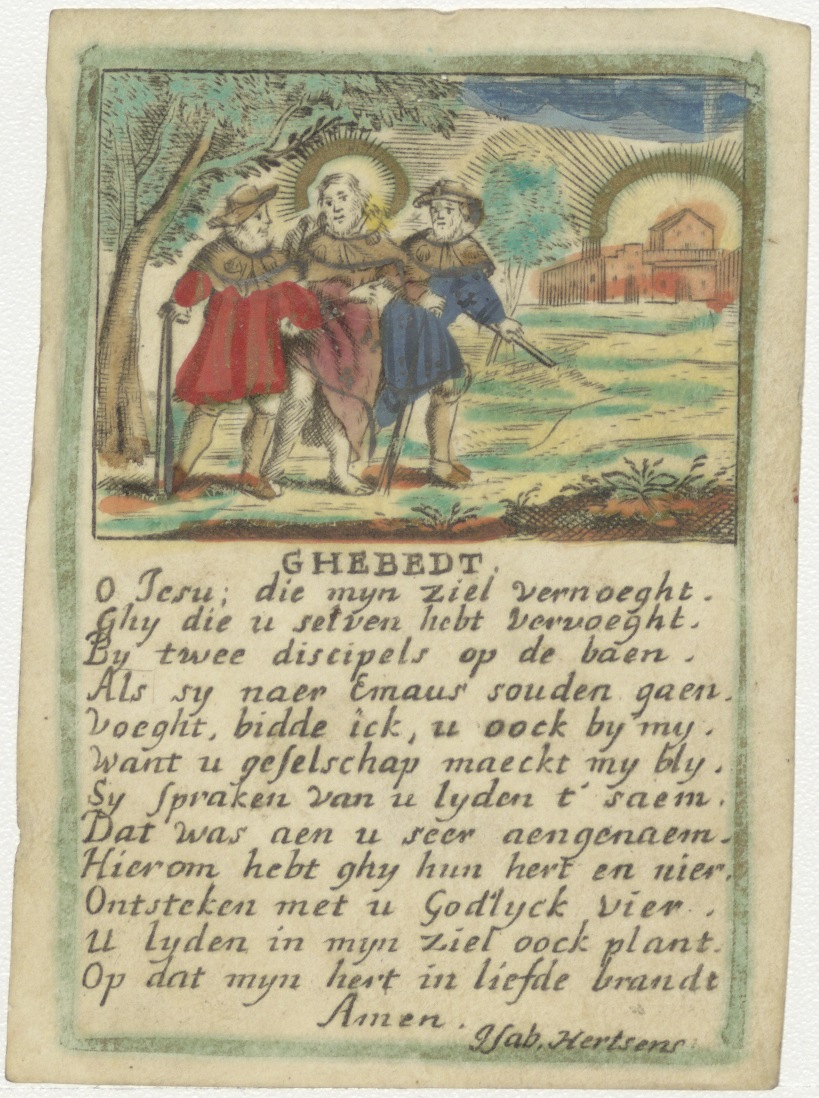 GHEBEDT.
O Jesu; die myn ziel vernoeght.
Ghy die u selven hebt vervoeght.
By twee discipels op de baen.
Als sy naer Emaus souden gaen.
Voeght, bidde ick, u oock by my.
Want u geselschap maeckt my bly.
Sy spraken van u lyden t' saem.
Dat was aen u seer aengenaem.
Hierom hebt ghy hun hert en nier.
Ontsteken met u Godlyck vier.
U lyden in myn ziel oock plant.
Op dat myn hert in liefde brandt
Amen.
Isab. Hertsens